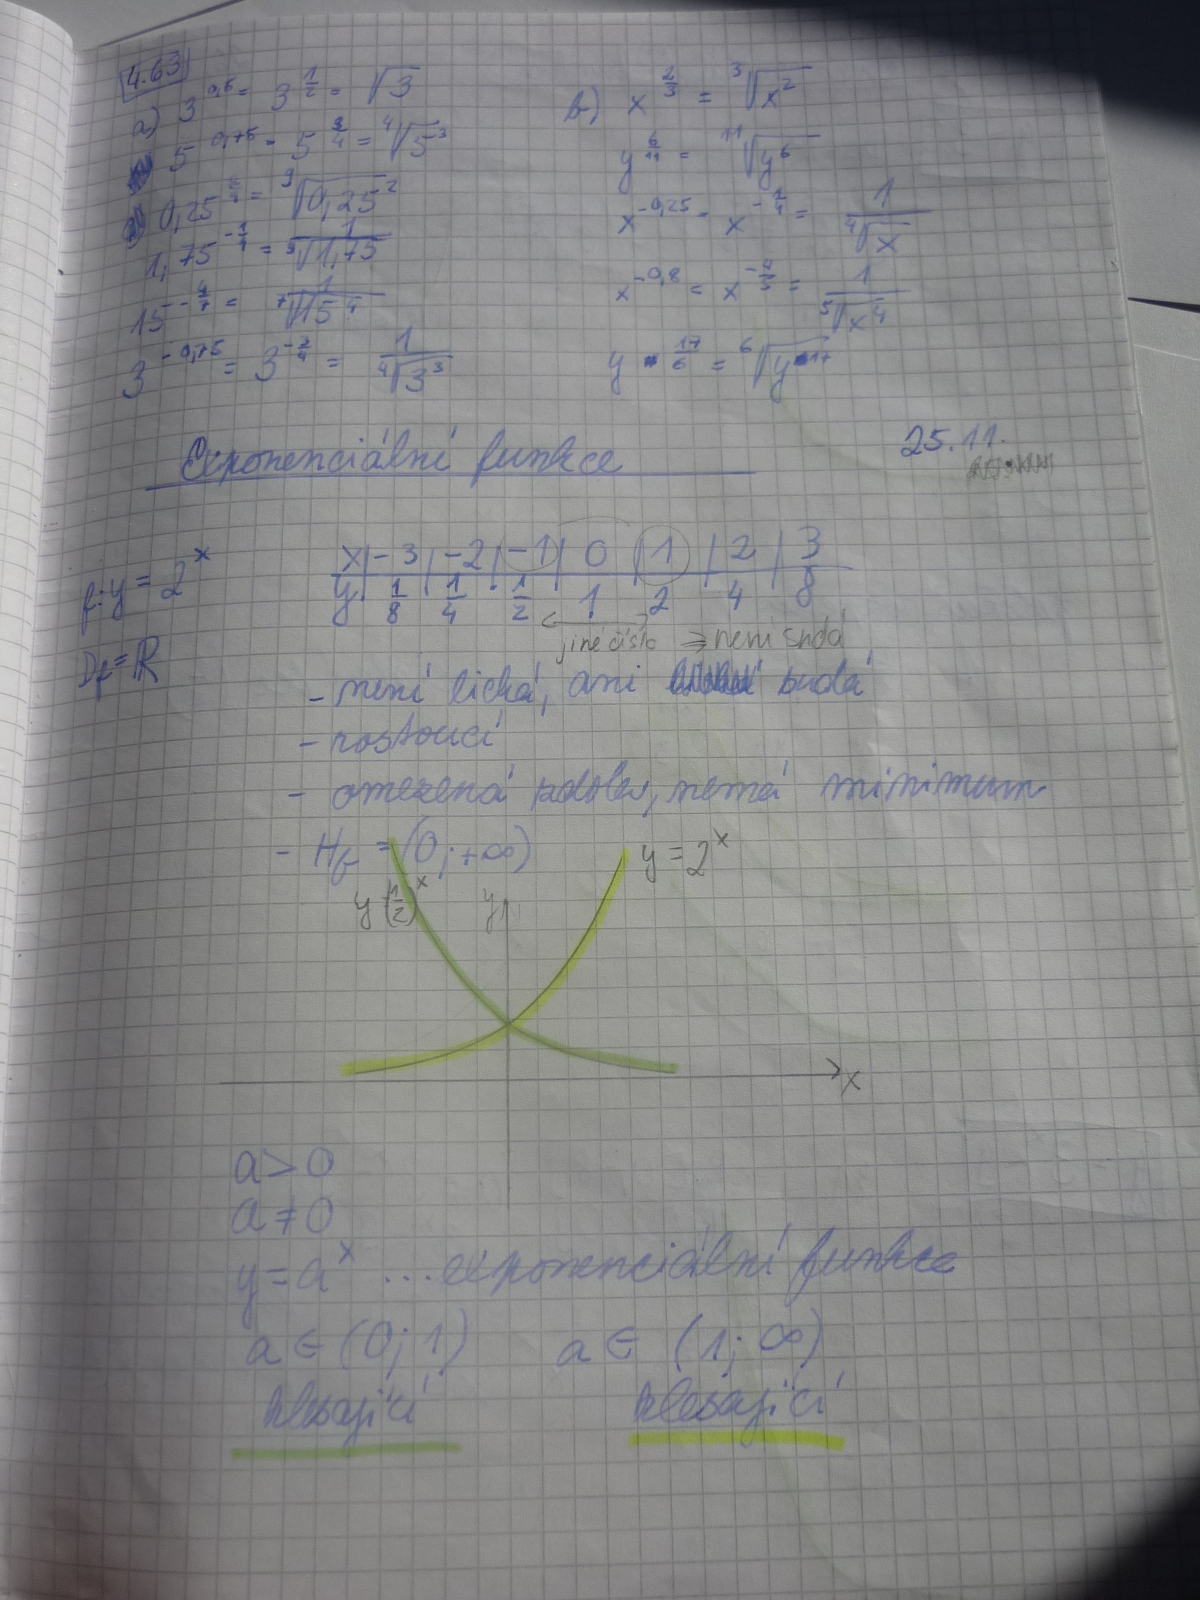 4.63
a) 3^0,5 = 3^1/2 = √3
5^0,75 = 5^3/4 = ⁴√5³
0,25 = ⁹√0,25²
1,75 = 1/⁹√1,75
15^-4/7 = 1/⁷√15⁴
3^-0,75 = 3^-3/4 = 1/⁴√3³
b) x^2/3 = ³√x²
y^6/11 = ¹¹√y⁶
x^-0,25 = x^-1/4 = 1/⁴√x
x^-0,8 = x^-4/5 = 1/⁵√x⁴
y^17/6 = ⁶√y¹⁷
Exponenciální funkce
25.11.
f: y = 2^x
x | -3 | -2 | -1 | 0 | 1 | 2 | 3
y | 1/8 | 1/4 | 1/2 | 1 | 2 | 4 | 8
jiné číslo ⇒ není sudá
Df = ℝ
- není lichá, ani sudá
- rostoucí
- omezená zdola, nemá minimum
- Hf = (0; +∞)
y = 2^x
y (1/2)^x
y
x
a > 0
a ≠ 0
y = a^x ... exponenciální funkce
a ∈ (0; 1) a ∈ (1; ∞)
klesající klesající